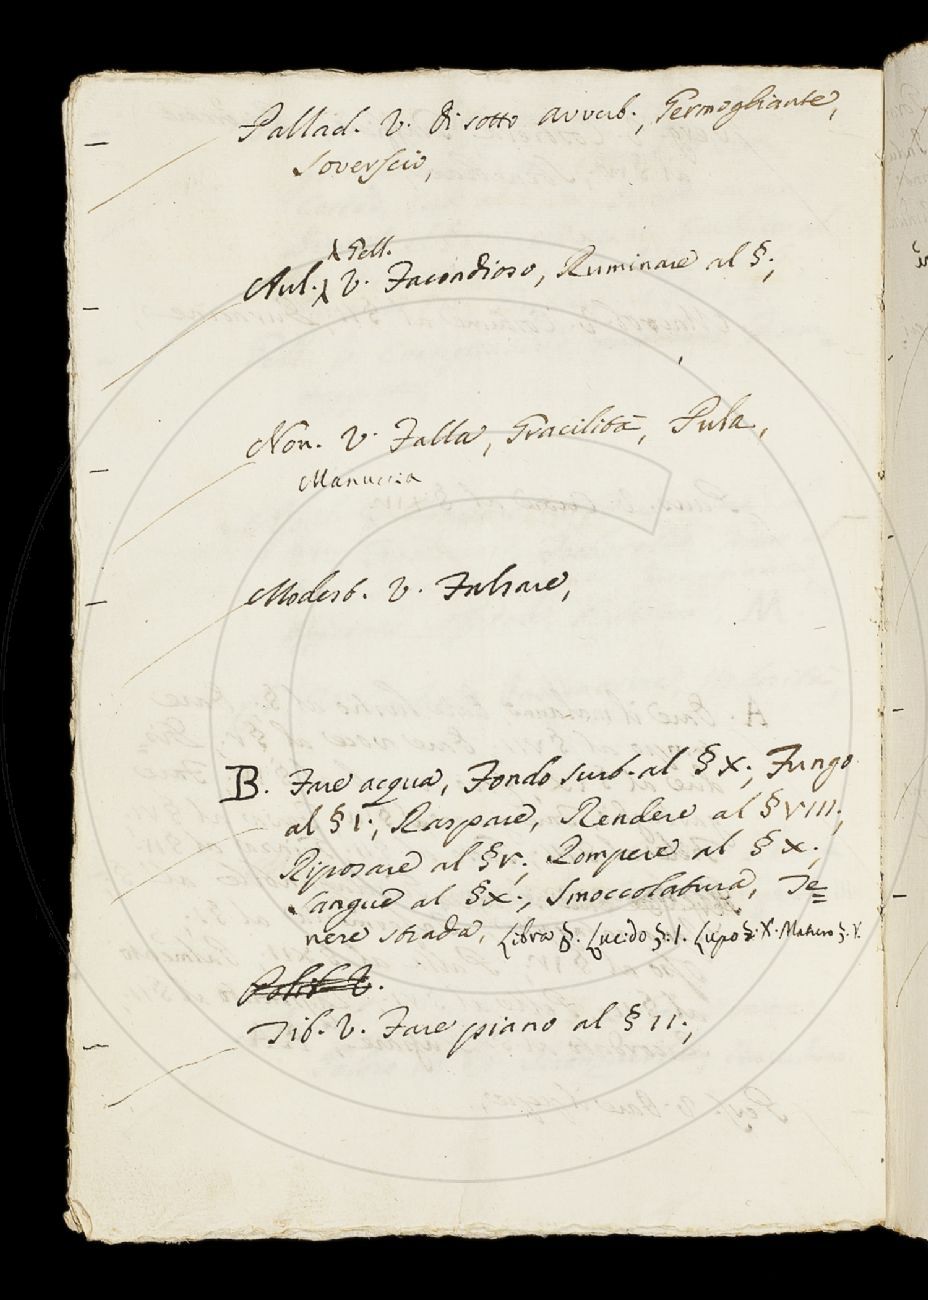 Pallad. V. Di sotto avverb., Germogliante,
Soverscio,
Gell.
Aul. V. Facondioso, Ruminare al §.,
Non. V. Falla, Gracilità, Pula,
Manuzza
Modest. V. Falsare,
B. Fare acqua, Fondo sust. al § X., Fungo
al § I., Raspare, Rendere al § VIII.,
Riposare al § V., Rompere al § X.,
Sangue al § X., Smoccolatura, Te=
nere strada. Libra §. Lucido §. I. Lupo §. X. Maturo §. V.
Polit V.
Tib. V. Fare piano al § II.,